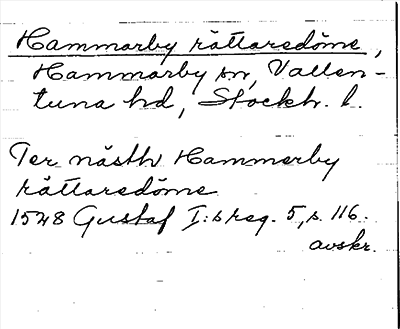 Hammarby rättaredöme,
Hammarby sn, Vallen-
tuna hd, Stockh. l.
Ter nästh Hammerby
rättaredöme
1548 Gustaf I:s reg. 5, s. 116.
avskr.